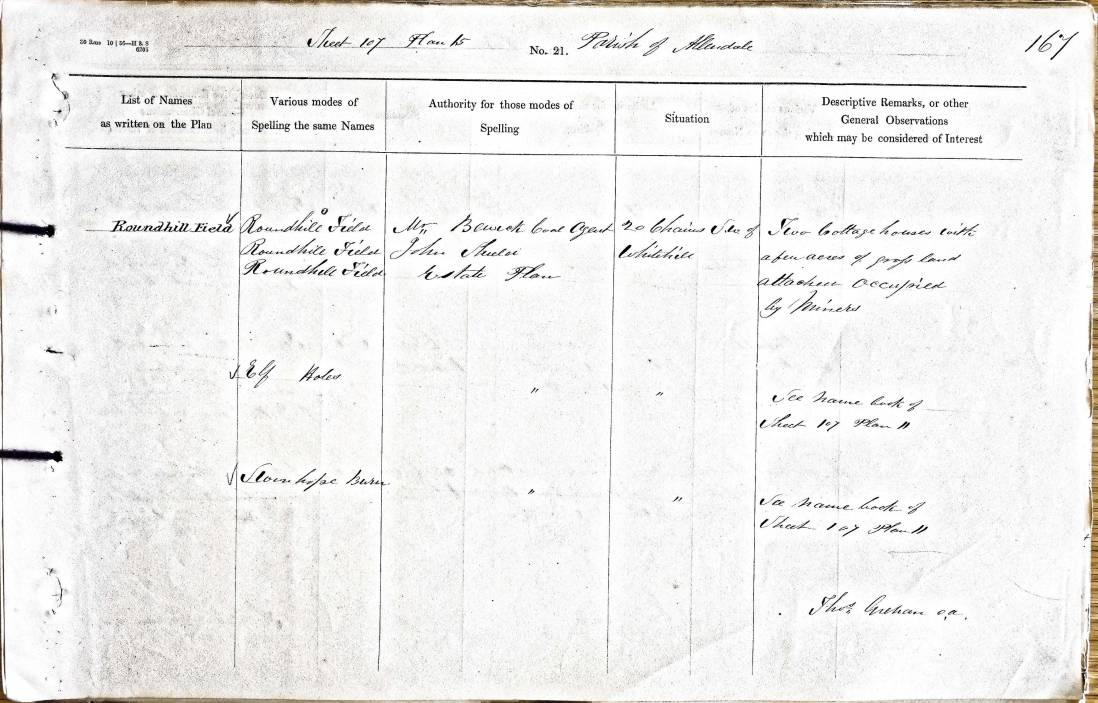 20 Rms 10 | 56—H & S
6705
Sheet 107 Plan 15
No. 21. Parish of Allendale
167
List of Names
as written on the Plan
Various modes of
Spelling the same Names
Authority for those modes of
Spelling
Situation
Descriptive Remarks, or other
General Observations
which may be considered of Interest
Roundhill Field
Roundhill Field
Roundhill Field
Roundhill Field
Mr. Bewick Coal Agent
John
Estate Plan
20 Chains S.W. of
Whitehill
Two Cottage houses with
a few acres of grass land
attached Occupied
by Miners
Elf Holes
"
"
See name book of
Sheet 107 Plan 11
Burn
"
"
See name book of
Sheet 107 Plan 11
Thos. Graham c.a.